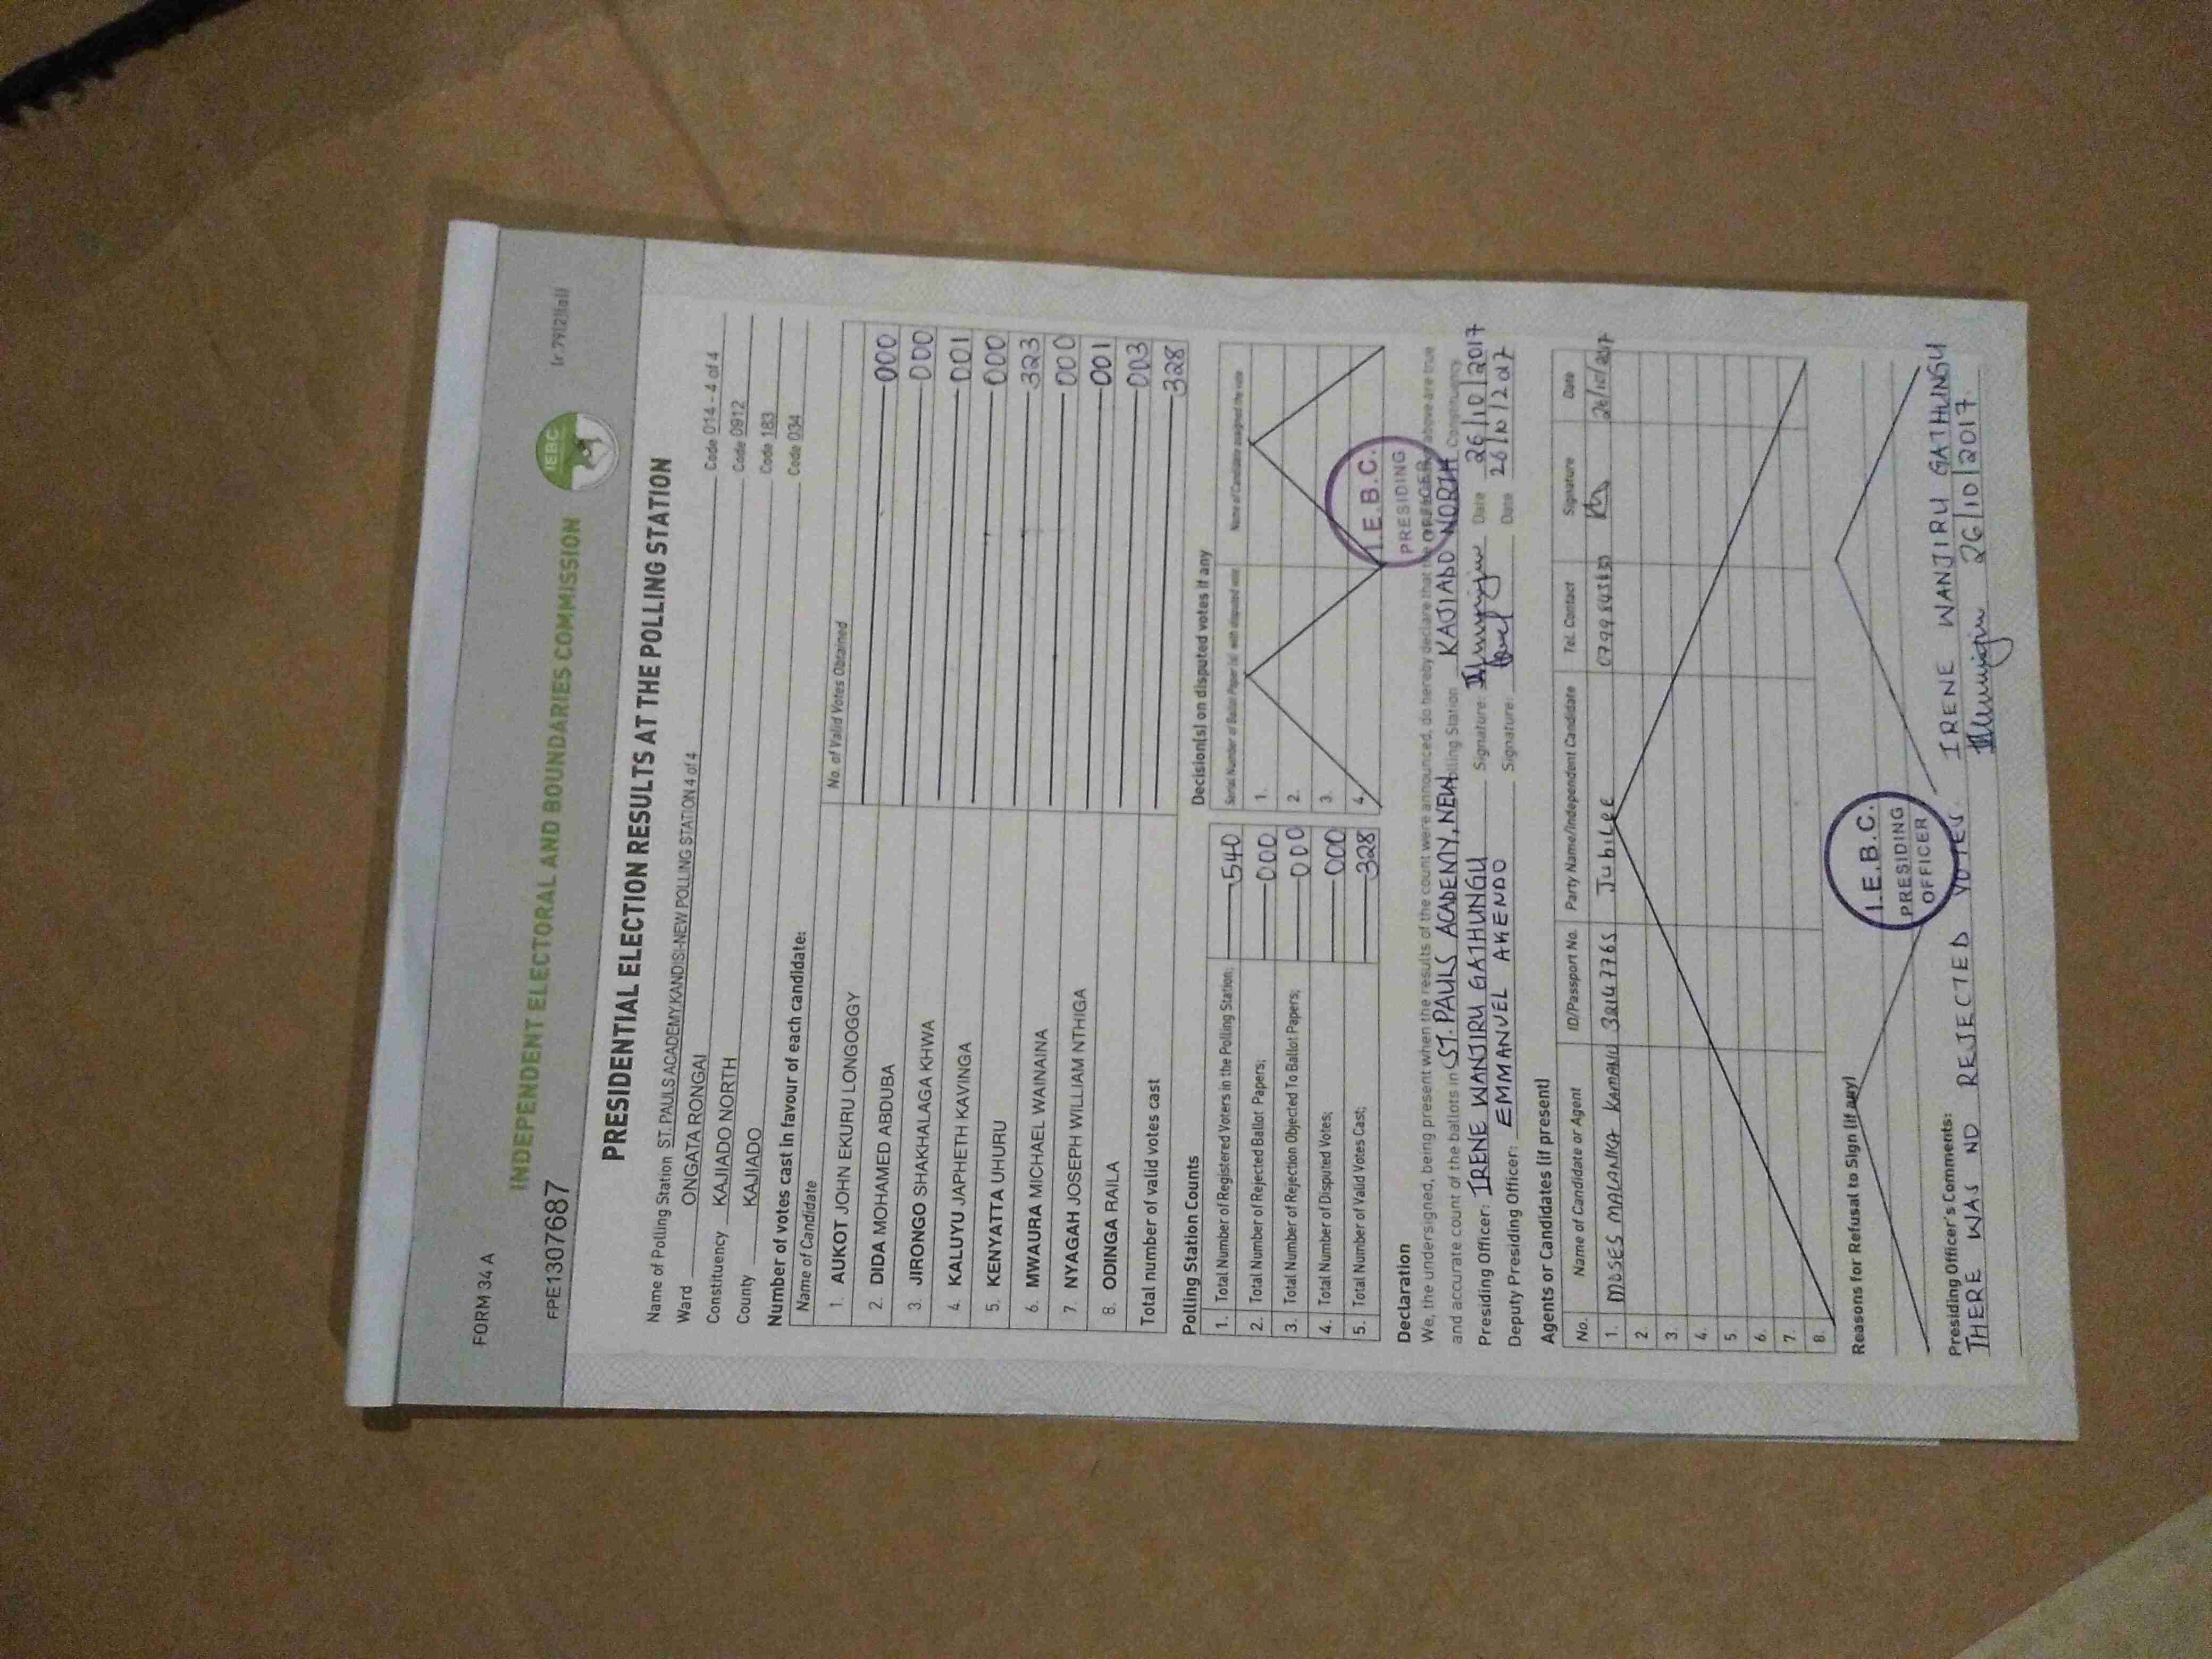 FORM 34 A
INDEPENDENT ELECTORAL AND BOUNDARIES COMMISSION
IEBC
FPE1307687
PRESIDENTIAL ELECTION RESULTS AT THE POLLING STATION
Name of Polling Station ST. PAULS ACADEMY,KANDISI-NEW POLLING STATION 4 of 4 Code 014 - 4 of 4
Ward ONGATA RONGAI Code 0912
Constituency KAJIADO NORTH Code 183
County KAJIADO Code 034
Number of votes cast in favour of each candidate:
Name of Candidate No. of Valid Votes Obtained
1. AUKOT JOHN EKURU LONGOGGY 000
2. DIDA MOHAMED ABDUBA 000
3. JIRONGO SHAKHALAGA KHWA 001
4. KALUYU JAPHETH KAVINGA 000
5. KENYATTA UHURU 323
6. MWAURA MICHAEL WAINAINA 000
7. NYAGAH JOSEPH WILLIAM NTHIGA 001
8. ODINGA RAILA 003
Total number of valid votes cast 328
Polling Station Counts
1. Total Number of Registered Voters in the Polling Station; 540
2. Total Number of Rejected Ballot Papers; 000
3. Total Number of Rejection Objected To Ballot Papers; 000
4. Total Number of Disputed Votes; 000
5. Total Number of Valid Votes Cast; 328
Decision(s) on disputed votes if any
Serial Number of Ballot Paper (s) with disputed vote Name of Candidate assigned the vote
1.
2.
3.
4.
I.E.B.C.
PRESIDING
OFFICER
Declaration
We, the undersigned, being present when the results of the count were announced, do hereby declare that the results above are true
and accurate count of the ballots in ST. PAULS ACADEMY, NEW Polling Station KAJIADO NORTH Constituency
Presiding Officer: IRENE WANJIRU GATHUNGU Signature: Date 26/10/2017
Deputy Presiding Officer: EMMANUEL AKENDO Signature: Date 26/10/2017
Agents or Candidates (if present)
No. Name of Candidate or Agent ID/Passport No. Party Name/Independent Candidate Tel. Contact Signature Date
1. MOSES KAMAU Jubilee 26/10/2017
2
3.
4.
5.
6.
7.
8.
Reasons for Refusal to Sign (if any)
I.E.B.C.
PRESIDING
OFFICER
Presiding Officer's Comments:
THERE WAS NO REJECTED VOTES. IRENE WANJIRU GATHUNGU
26/10/2017.